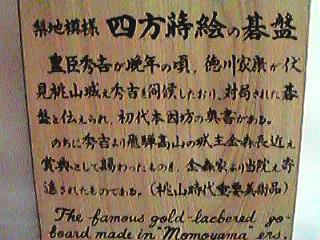 梨地模様 四方蒔絵の碁盤
豊臣秀吉が晩年の頃、徳川家康が伏
見桃山城え秀吉を伺候したおり、対局された碁
盤と伝えられ、初代本因坊の奥書がある。
のちに秀吉より飛騨高山の城主金森長近え
賞典として賜わったものを、金森家より当院え寄
進されたものである。(桃山時代重要美術品)
The famous gold-lacbered go-
board made in "Momoyama" era.